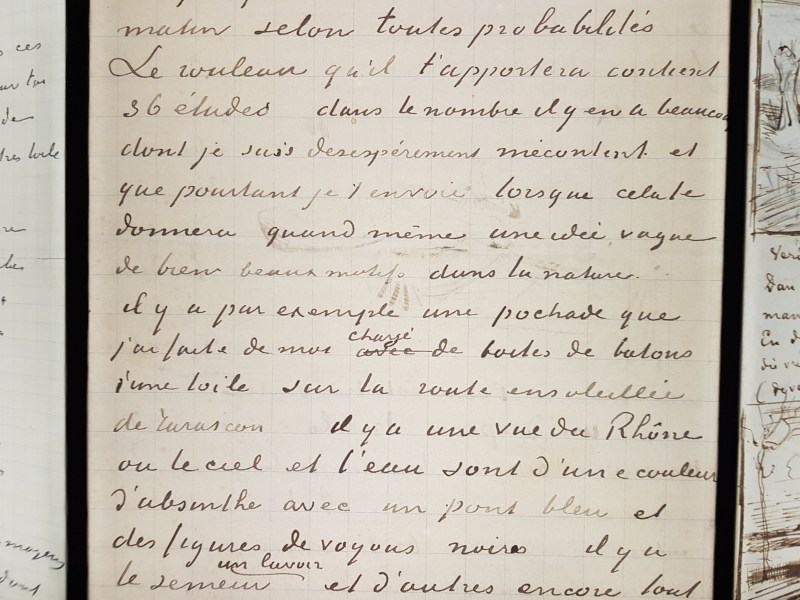 matin selon toutes probabilités
Le rouleau qu'il t'apportera contient
36 études dans le nombre il y en a beaucoup
dont je suis desespérement mécontent et
que pourtant je t'envoie lorsque cela te
donnera quand même une idée vague
de bien beaux motifs dans la nature.
il y a par exemple une pochade que
j'ai faite de moi chargé
avec de boites de batons
d'une toile sur la route ensoleillée
de Tarascon il y a une vue du Rhône
ou le ciel et l'eau sont d'une couleur
d'absinthe avec un pont bleu et
des figures de voyous noires il y a
le semeur un lavoir et d'autres encore tout
s ces
ur toi
de
tres toile
re
les
moyens
dont
Dan
man
En d